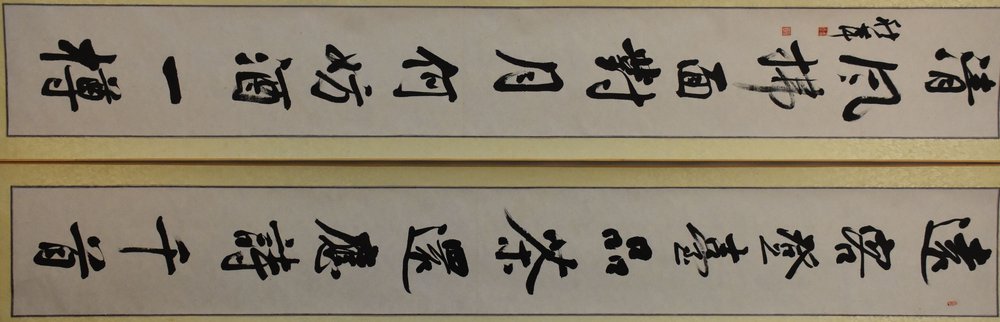 遠客登臺品茶還應詩千首
清風拂面對月何妨酒一樽